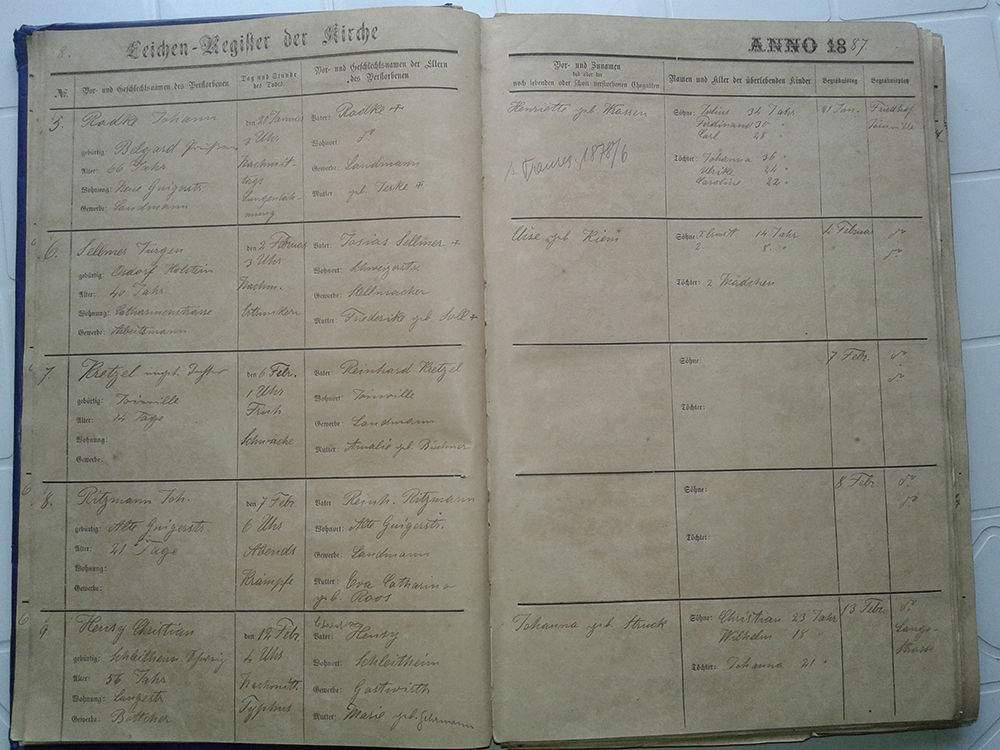 8.
Leichen-Register der Kirche
№.
Vor- und Geschlechtsnamen des Verstorbenen
Tag und Stunde
des Todes
Vor- und Geschlechtsnamen der Eltern
des Verstorbenen
5.
Radke Johann
gebürtig: Belgard
Alter: 66 Jahr
Wohnung: Neue
Gewerbe: Landmann
3 Uhr
Vater: Radke +
Wohnort:
Gewerbe: Landmann
Mutter: geb.
6.
Sellmer Jürgen
gebürtig: Osdorf Holstein
Alter: 40 Jahr
Wohnung: Catharinenstrasse
Gewerbe: Arbeitsmann
den 2 Februar
3 Uhr
Nachm.
Ertrunken
Vater: Tosias Sellmer +
Wohnort:
Gewerbe: Stellmacher
Mutter: Friederike geb. Soll +
7.
Kretzel ungt. Tochter
gebürtig: Joinville
Alter: 14 Tage
Wohnung:
Gewerbe:
den 6 Febr.
1 Uhr
Früh
Schwäche
Vater: Reinhard Kretzel
Wohnort: Joinville
Gewerbe: Landmann
Mutter: Amalie geb. Büchner
8.
Ritzmann Joh.
gebürtig: Alte
Alter: 21 Tage
Wohnung:
Gewerbe:
den 7 Febr.
6 Uhr
Abends
Krämpfe
Vater: Reinh. Ritzmann
Wohnort: Alte
Gewerbe: Landmann
Mutter: Eva Catharina
geb. Roos
9.
Hensy Christian
gebürtig: Schleitheim
Alter: 56 Jahr
Wohnung: Langestr.
Gewerbe: Böttcher
den 12 Febr.
4 Uhr
Nachmitt.
Typhus
Vater: Hensy
Wohnort: Schleitheim
Gewerbe: Gastwirth
Mutter: Marie geb.
ANNO 1887
Vor- und Zunamen
des oder der
noch lebenden oder schon verstorbenen Ehegatten
Namen und Alter der überlebenden Kinder
Begräbnißtag
Begräbnißplatz
Henriette geb. Krassen
1878/6
Söhne: Julius 32 Jahr
Ferdinand 30 "
Carl 28 "
Töchter: Johanna 36 "
Ulrike 24 "
Caroline 22 "
21 Jan.
Friedhof
Joinville
Elise geb. Riem
Söhne: 1. Ernst 14 Jahr
2. 8 "
Töchter: 2 Mädchen
4 Februar
do
do
Söhne:
Töchter:
7 Febr.
do
do
Söhne:
Töchter:
8 Febr.
do
do
Johanna geb. Struck
Söhne: Christian 23 Jahr
Wilhelm 18 "
Töchter: Johanna 21 "
13 Febr.
do
Lange-
strasse